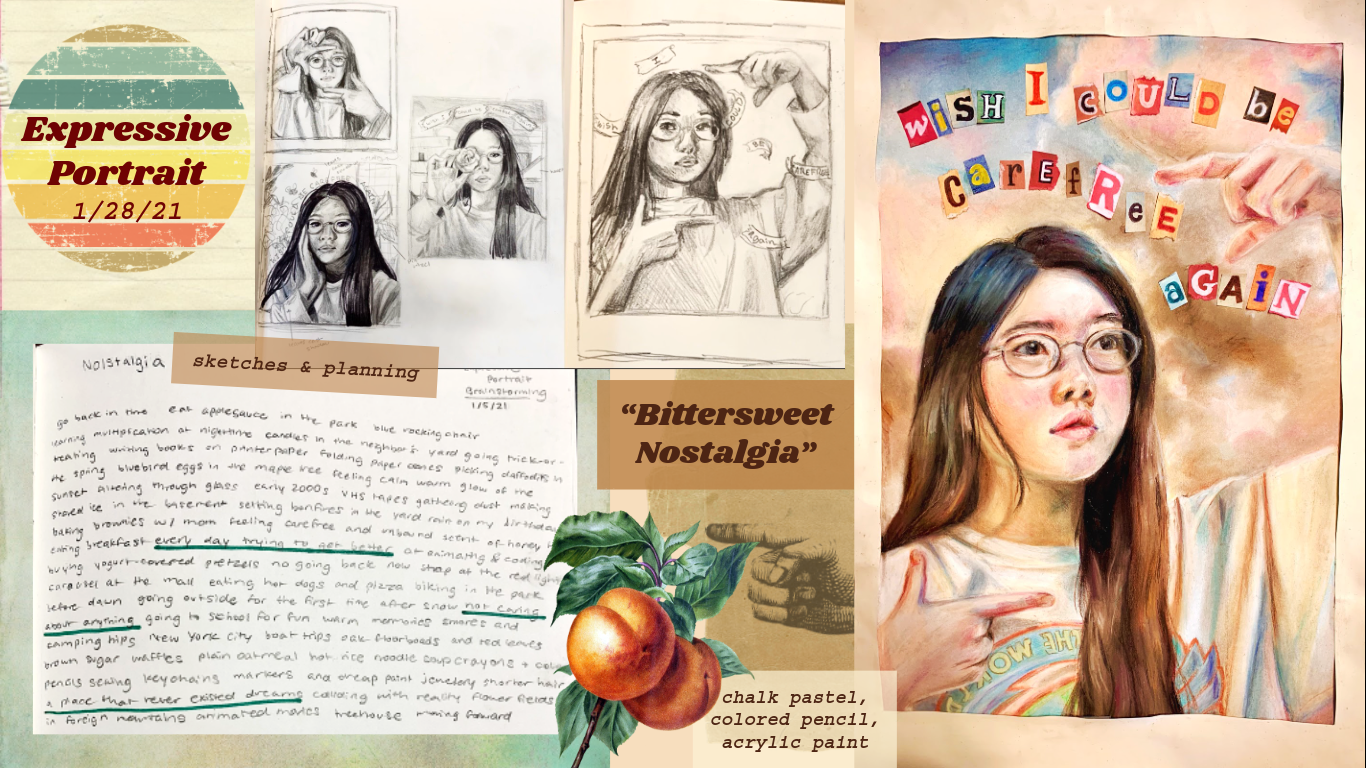 Expressive
Portrait
1/28/21
sketches & planning
Nolstalgia
Portrait
Brainstorming
1/5/21
go back in time eat applesauce in the park blue rocking chair
learning multiplication at nighttime candles in the neighbor's yard going trick-or-
treating writing books on printer paper folding paper cones picking daffodils in
the spring bluebird eggs in the maple tree feeling calm warm glow of the
sunset filtering through glass early 2000s VHS tapes gathering dust making
shaved ice in the basement setting bonfires in the yard rain on my birthday
baking brownies w/ mom feeling carefree and unbound scent of honey
eating breakfast every day trying to get better at animating & coding
buying yogurt-covered pretzels no going back now stop at the red light
carousel at the mall eating hot dogs and pizza biking in the park
before dawn going outside for the first time after snow not caring
about anything going to school for fun warm memories smores and
camping trips New York City boat trips oak floorboards and red leaves
brown sugar waffles plain oatmeal hot rice noodle soup crayons +
pencils sewing keychains markers and cheap paint jewelry shorter hair
a place that never existed dreams colliding with reality flower fields
in foreign mountains animated movies treehouse moving forward
I
wish
could
carefree
again
"Bittersweet
Nostalgia"
chalk pastel,
colored pencil,
acrylic paint
wiSH I COULD be
CarEfRee
aGAiN
THE WORL